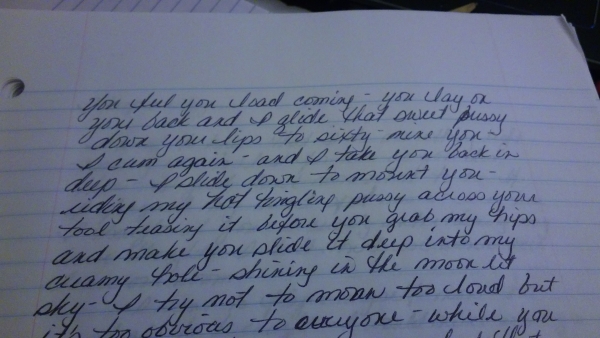 You feel you load coming - you lay on
your back and I glide that sweet pussy
down your lips to sixty-nine you -
I cum again - and I take you back in
deep - I slide down to mount you -
riding my hot tingling pussy across your
tool teasing it before you grab my hips
and make you slide it deep into my
creamy hole - shining in the moon lit
sky - I try not to moan too loud but
it's too obvious to everyone - while you